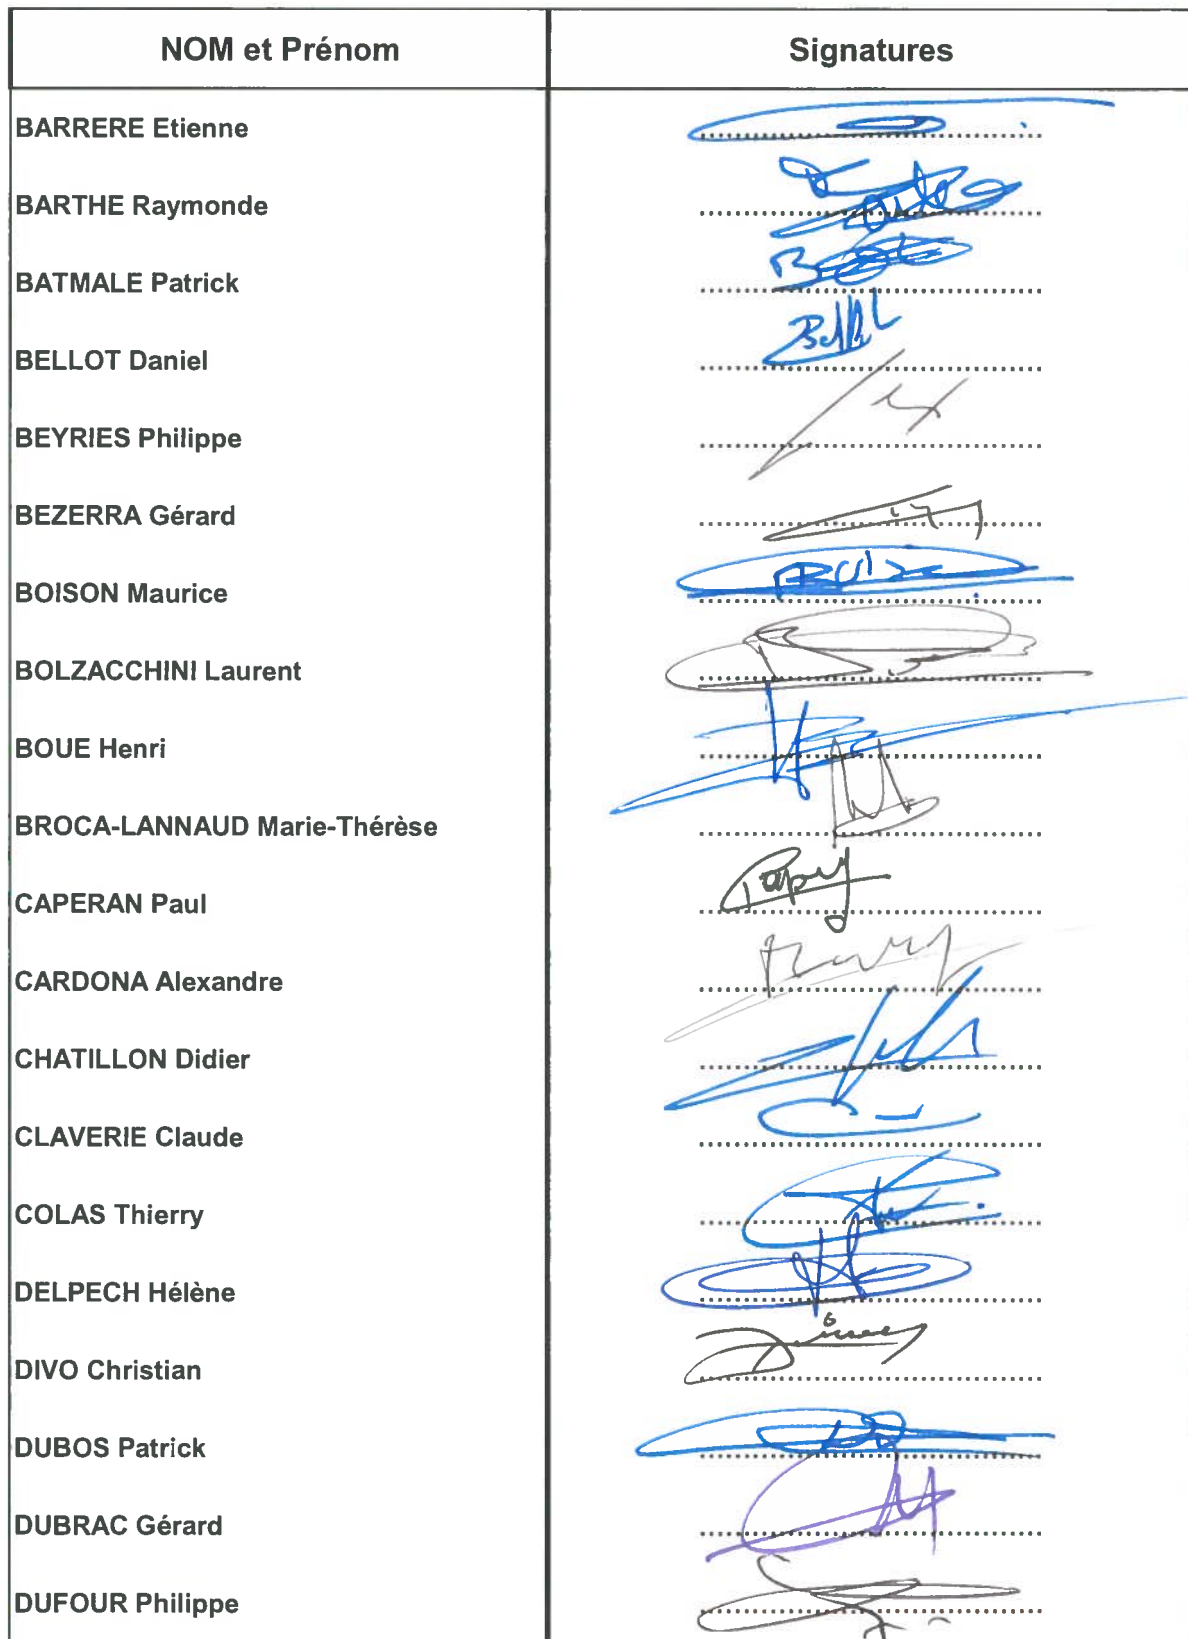 NOM et Prénom Signatures
BARRERE Etienne
BARTHE Raymonde
BATMALE Patrick
BELLOT Daniel
BEYRIES Philippe
BEZERRA Gérard
BOISON Maurice
BOLZACCHINI Laurent
BOUE Henri
BROCA-LANNAUD Marie-Thérèse
CAPERAN Paul
CARDONA Alexandre
CHATILLON Didier
CLAVERIE Claude
COLAS Thierry
DELPECH Hélène
DIVO Christian
DUBOS Patrick
DUBRAC Gérard
DUFOUR Philippe